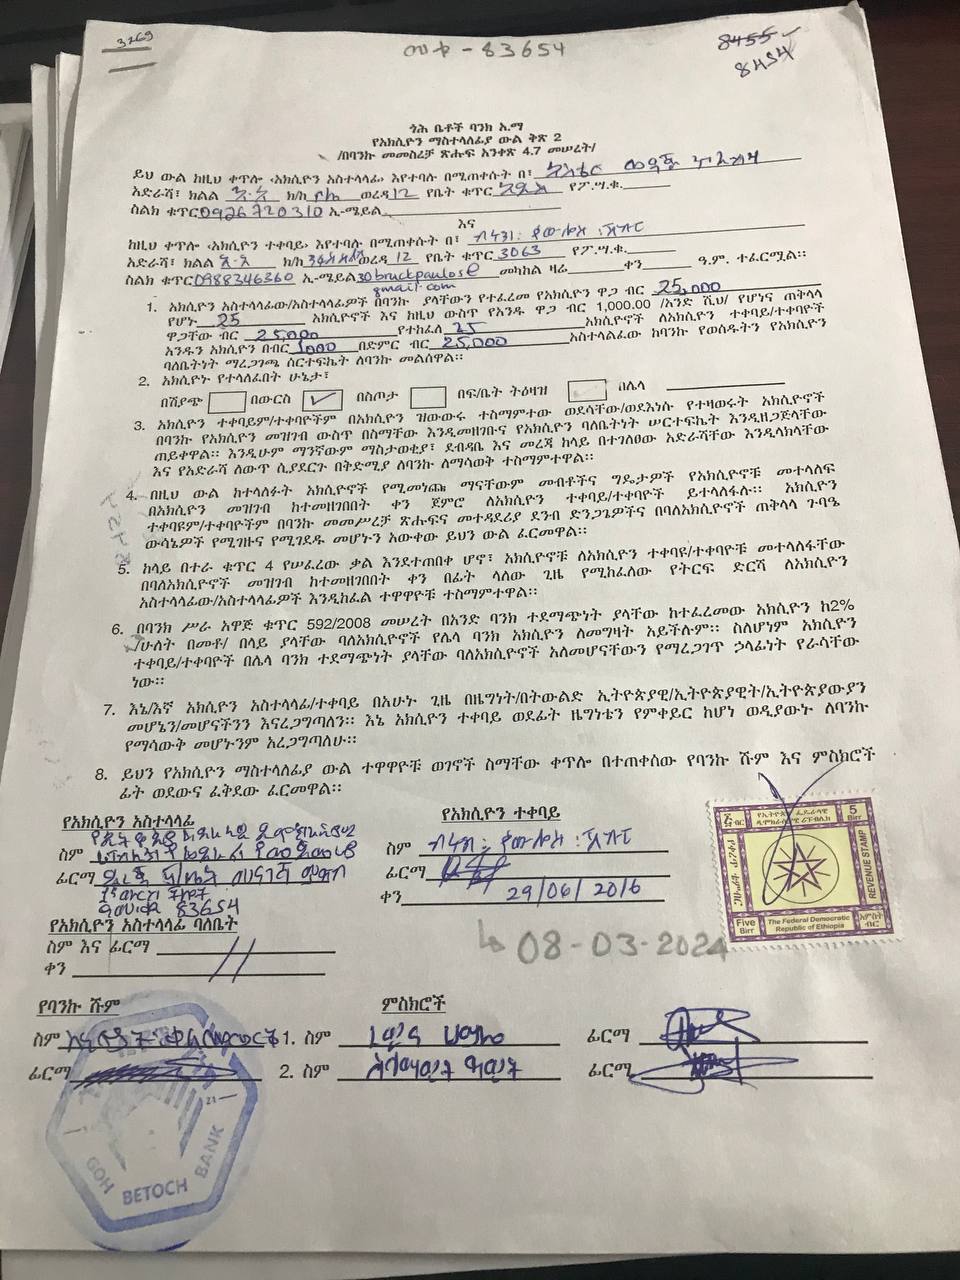 3269
መቀ - 83654
8455
8454
ጎሕ ቤቶች ባንክ አ.ማ
የአክሲዮን ማስተላለፊያ ውል ቅጽ 2
/በባንኩ መመስረቻ ጽሑፍ አንቀጽ 4.7 መሠረት/
ይህ ውል ከዚህ ቀጥሎ ‹አክሲዮን አስተላላፊ› እየተባሉ በሚጠቀሱት በ፤
አድራሻ፤ ክልል አ.አ ክ/ከ የካ ወረዳ 12 የቤት ቁጥር አዲስ የፖ.ሣ.ቁ.
ስልክ ቁጥር 0926720310 ኢ-ሜይል
እና
ከዚህ ቀጥሎ ‹አክሲዮን ተቀባይ› እየተባሉ በሚጠቀሱት በ፤
አድራሻ፤ ክልል አ.አ ክ/ከ ወረዳ 12 የቤት ቁጥር 3063 የፖ.ሣ.ቁ.
ስልክ ቁጥር 0988346360 ኢ-ሜይል 30bruckpaulos@ መካከል ዛሬ ቀን ዓ.ም. ተፈርሟል።
gmail.com
1. አክሲዮን አስተላላፊው/አስተላላፊዎች በባንኩ ያላቸውን የተፈረመ የአክሲዮን ዋጋ ብር 25,000
የሆኑ 25 አክሲዮኖች እና ከዚህ ውስጥ የአንዱ ዋጋ ብር 1,000.00 /አንድ ሺህ/ የሆነና ጠቅላላ
ዋጋቸው ብር 25,000 የተከፈለ 25 አክሲዮኖች ለአክሲዮን ተቀባይ/ተቀባዮች
አንዱን አክሲዮን በብር 1000 በድምር ብር 25,000 አስተላልፈው ከባንኩ የወሰዱትን የአክሲዮን
ባለቤትነት ማረጋገጫ ሰርተፍኬት ለባንኩ መልሰዋል።
2. አክሲዮኑ የተላለፈበት ሁኔታ፤
በሽያጭ በውርስ ✓ በስጦታ በፍ/ቤት ትዕዛዝ በሌላ
3. አክሲዮን ተቀባይም/ተቀባዮችም በአክሲዮን ዝውውሩ ተስማምተው ወደሳቸው/ወደእነሱ የተዛወሩት አክሲዮኖች
በባንኩ የአክሲዮን መዝገብ ውስጥ በስማቸው እንዲመዘገቡና የአክሲዮን ባለቤትነት ሠርተፍኬት እንዲዘጋጅላቸው
ጠይቀዋል። እንዲሁም ማንኛውም ማስታወቂያ፣ ደብዳቤ እና መረጃ ከላይ በተገለፀው አድራሻቸው እንዲላክላቸው
እና የአድራሻ ለውጥ ሲያደርጉ በቅድሚያ ለባንኩ ለማሳወቅ ተስማምተዋል።
4. በዚህ ውል ከተላለፉት አክሲዮኖች የሚመነጩ ማናቸውም መብቶችና ግዴታዎች የአክሲዮኖቹ መተላለፍ
በአክሲዮን መዝገብ ከተመዘገበበት ቀን ጀምሮ ለአክሲዮን ተቀባይ/ተቀባዮች ይተላለፋሉ። አክሲዮን
ተቀባዩም/ተቀባዮችም በባንኩ መመሥረቻ ጽሑፍና መተዳደሪያ ደንብ ድንጋጌዎችና በባለአክሲዮኖች ጠቅላላ ጉባዔ
ውሳኔዎች የሚገዙና የሚገደዱ መሆኑን አውቀው ይህን ውል ፈርመዋል።
5. ከላይ በተራ ቁጥር 4 የሠፈረው ቃል እንደተጠበቀ ሆኖ፣ አክሲዮኖቹ ለአክሲዮን ተቀባዩ/ተቀባዮቹ መተላለፋቸው
በባለአክሲዮኖች መዝገብ ከተመዘገበበት ቀን በፊት ላለው ጊዜ የሚከፈለው የትርፍ ድርሻ ለአክሲዮን
አስተላላፊው/አስተላላፊዎች እንዲከፈል ተዋዋዮቹ ተስማምተዋል።
6. በባንክ ሥራ አዋጅ ቁጥር 592/2008 መሠረት በአንድ ባንክ ተደማጭነት ያላቸው ከተፈረመው አክሲዮን ከ2%
/ሁለት በመቶ/ በላይ ያላቸው ባለአክሲዮኖች የሌላ ባንክ አክሲዮን ለመግዛት አይችሉም። ስለሆነም አክሲዮን
ተቀባይ/ተቀባዮች በሌላ ባንክ ተደማጭነት ያላቸው ባለአክሲዮኖች አለመሆናቸውን የማረጋገጥ ኃላፊነት የራሳቸው
ነው።
7. እኔ/እኛ አክሲዮን አስተላላፊ/ተቀባይ በአሁኑ ጊዜ በዜግነት/በትውልድ ኢትዮጵያዊ/ኢትዮጵያዊት/ኢትዮጵያውያን
መሆኔን/መሆናችንን እናረጋግጣለን። እኔ አክሲዮን ተቀባይ ወደፊት ዜግነቴን የምቀይር ከሆነ ወዲያውኑ ለባንኩ
የማሳውቅ መሆኑንም አረጋግጣለሁ።
8. ይህን የአክሲዮን ማስተላለፊያ ውል ተዋዋዮቹ ወገኖች ስማቸው ቀጥሎ በተጠቀሰው የባንኩ ሹም እና ምስክሮች
ፊት ወደውና ፈቅደው ፈርመዋል።
የአክሲዮን አስተላላፊ
ስም
ፊርማ
83654
የአክሲዮን ተቀባይ
ስም
ፊርማ
ቀን 29/06/2016
08-03-2024
5 Birr
REVENUE STAMP
Five Birr
The Federal Democratic Republic of Ethiopia
አምስት ብር
የአክሲዮን አስተላላፊ ባለቤት
ስም እና ፊርማ
ቀን
የባንኩ ሹም
ስም
ፊርማ
ምስክሮች
1. ስም ፊርማ
2. ስም ፊርማ
GOH BETOCH BANK